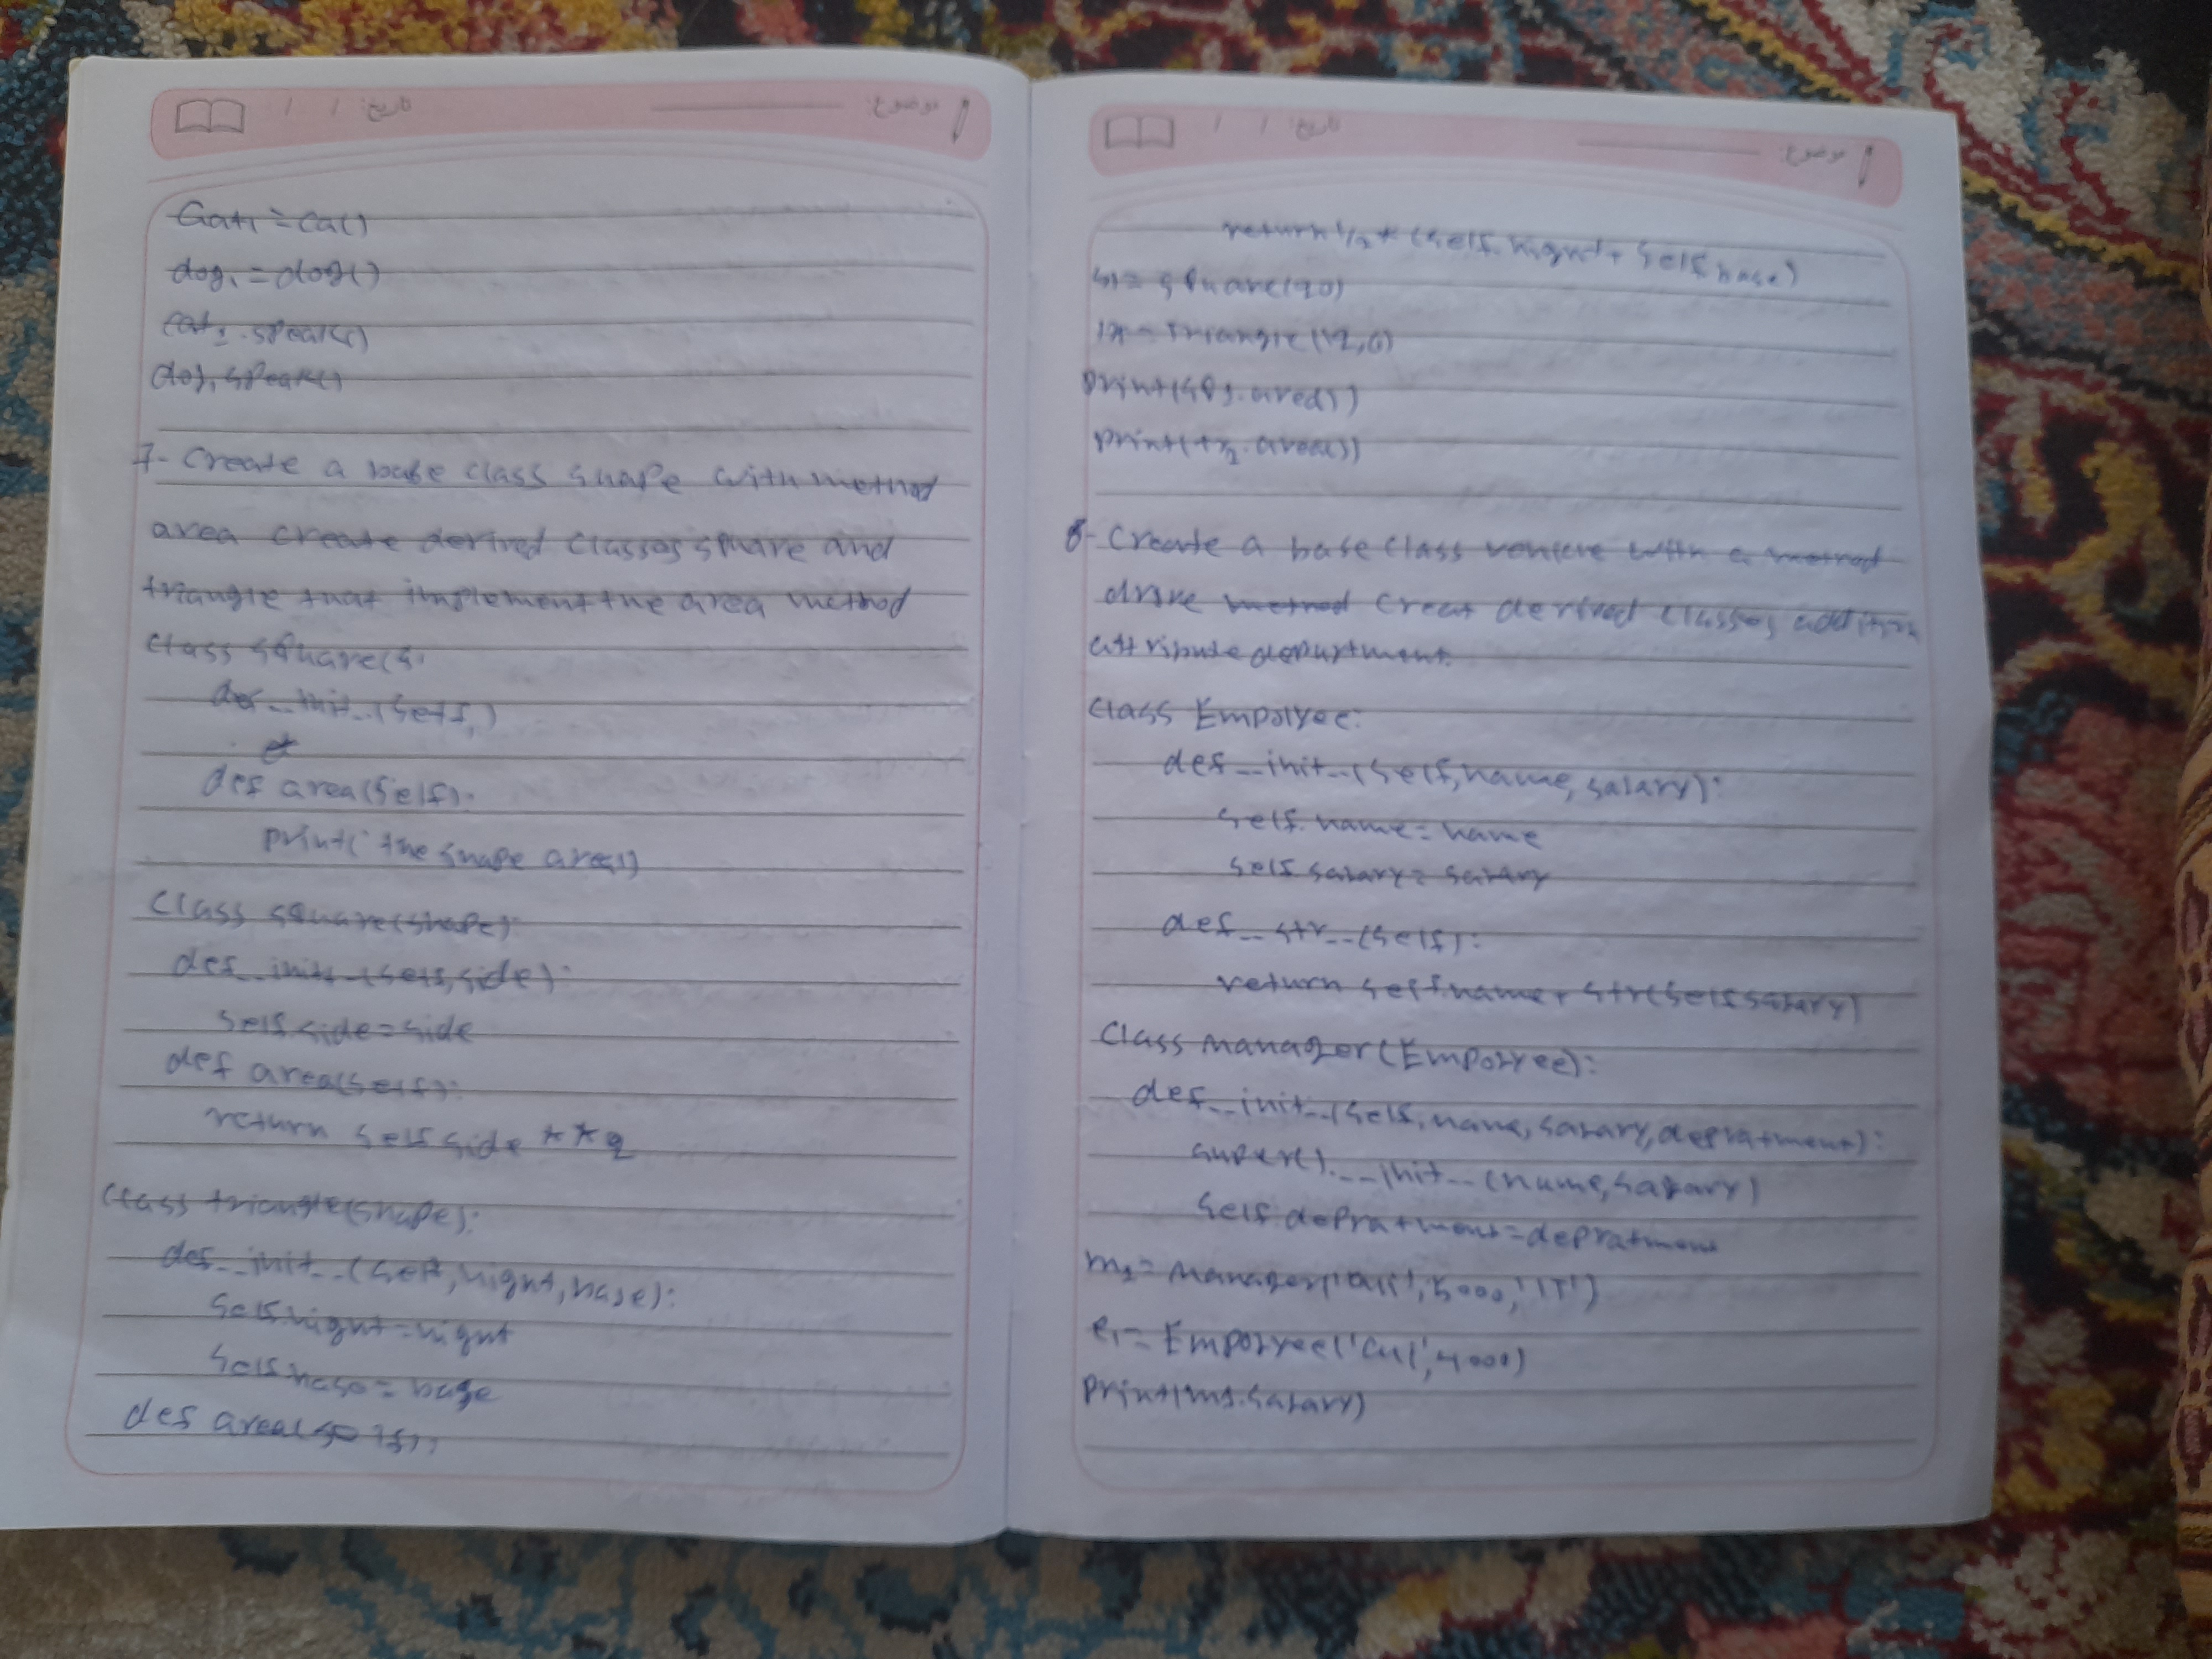 Cat1 = cat()
dog1 = dog()
cat1.speak()
dog1.speak()
7- Create a base class shape with method
area create derived classes sphare and
triangle that implement the area method
class sphare(s
def __init__(self,)
def area(self):
print('the shape area')
Class square(shape):
def __init__(self, side):
self.side = side
def area(self):
return self.side **2
Class triangle(shape):
def __init__(self, hight, base):
self.hight = hight
self.base = base
def area(self):
return 1/2 * (self.hight * self.base)
print(tr1.area())
8- Create a base class vehicle with a method
drive method creat derived classes addition
attribute department
Class Empolyee:
def __init__(self, name, salary):
self.name = name
self.salary = salary
def __str__(self):
return self.name + str(self.salary)
Class manager(Empolyee):
def __init__(self, name, salary, depratment):
super().__init__(name, salary)
self.depratment = depratment
m1 = manager('ali', 5000, 'IT')
e1 = Empolyee('ali', 4000)
print(m1.salary)